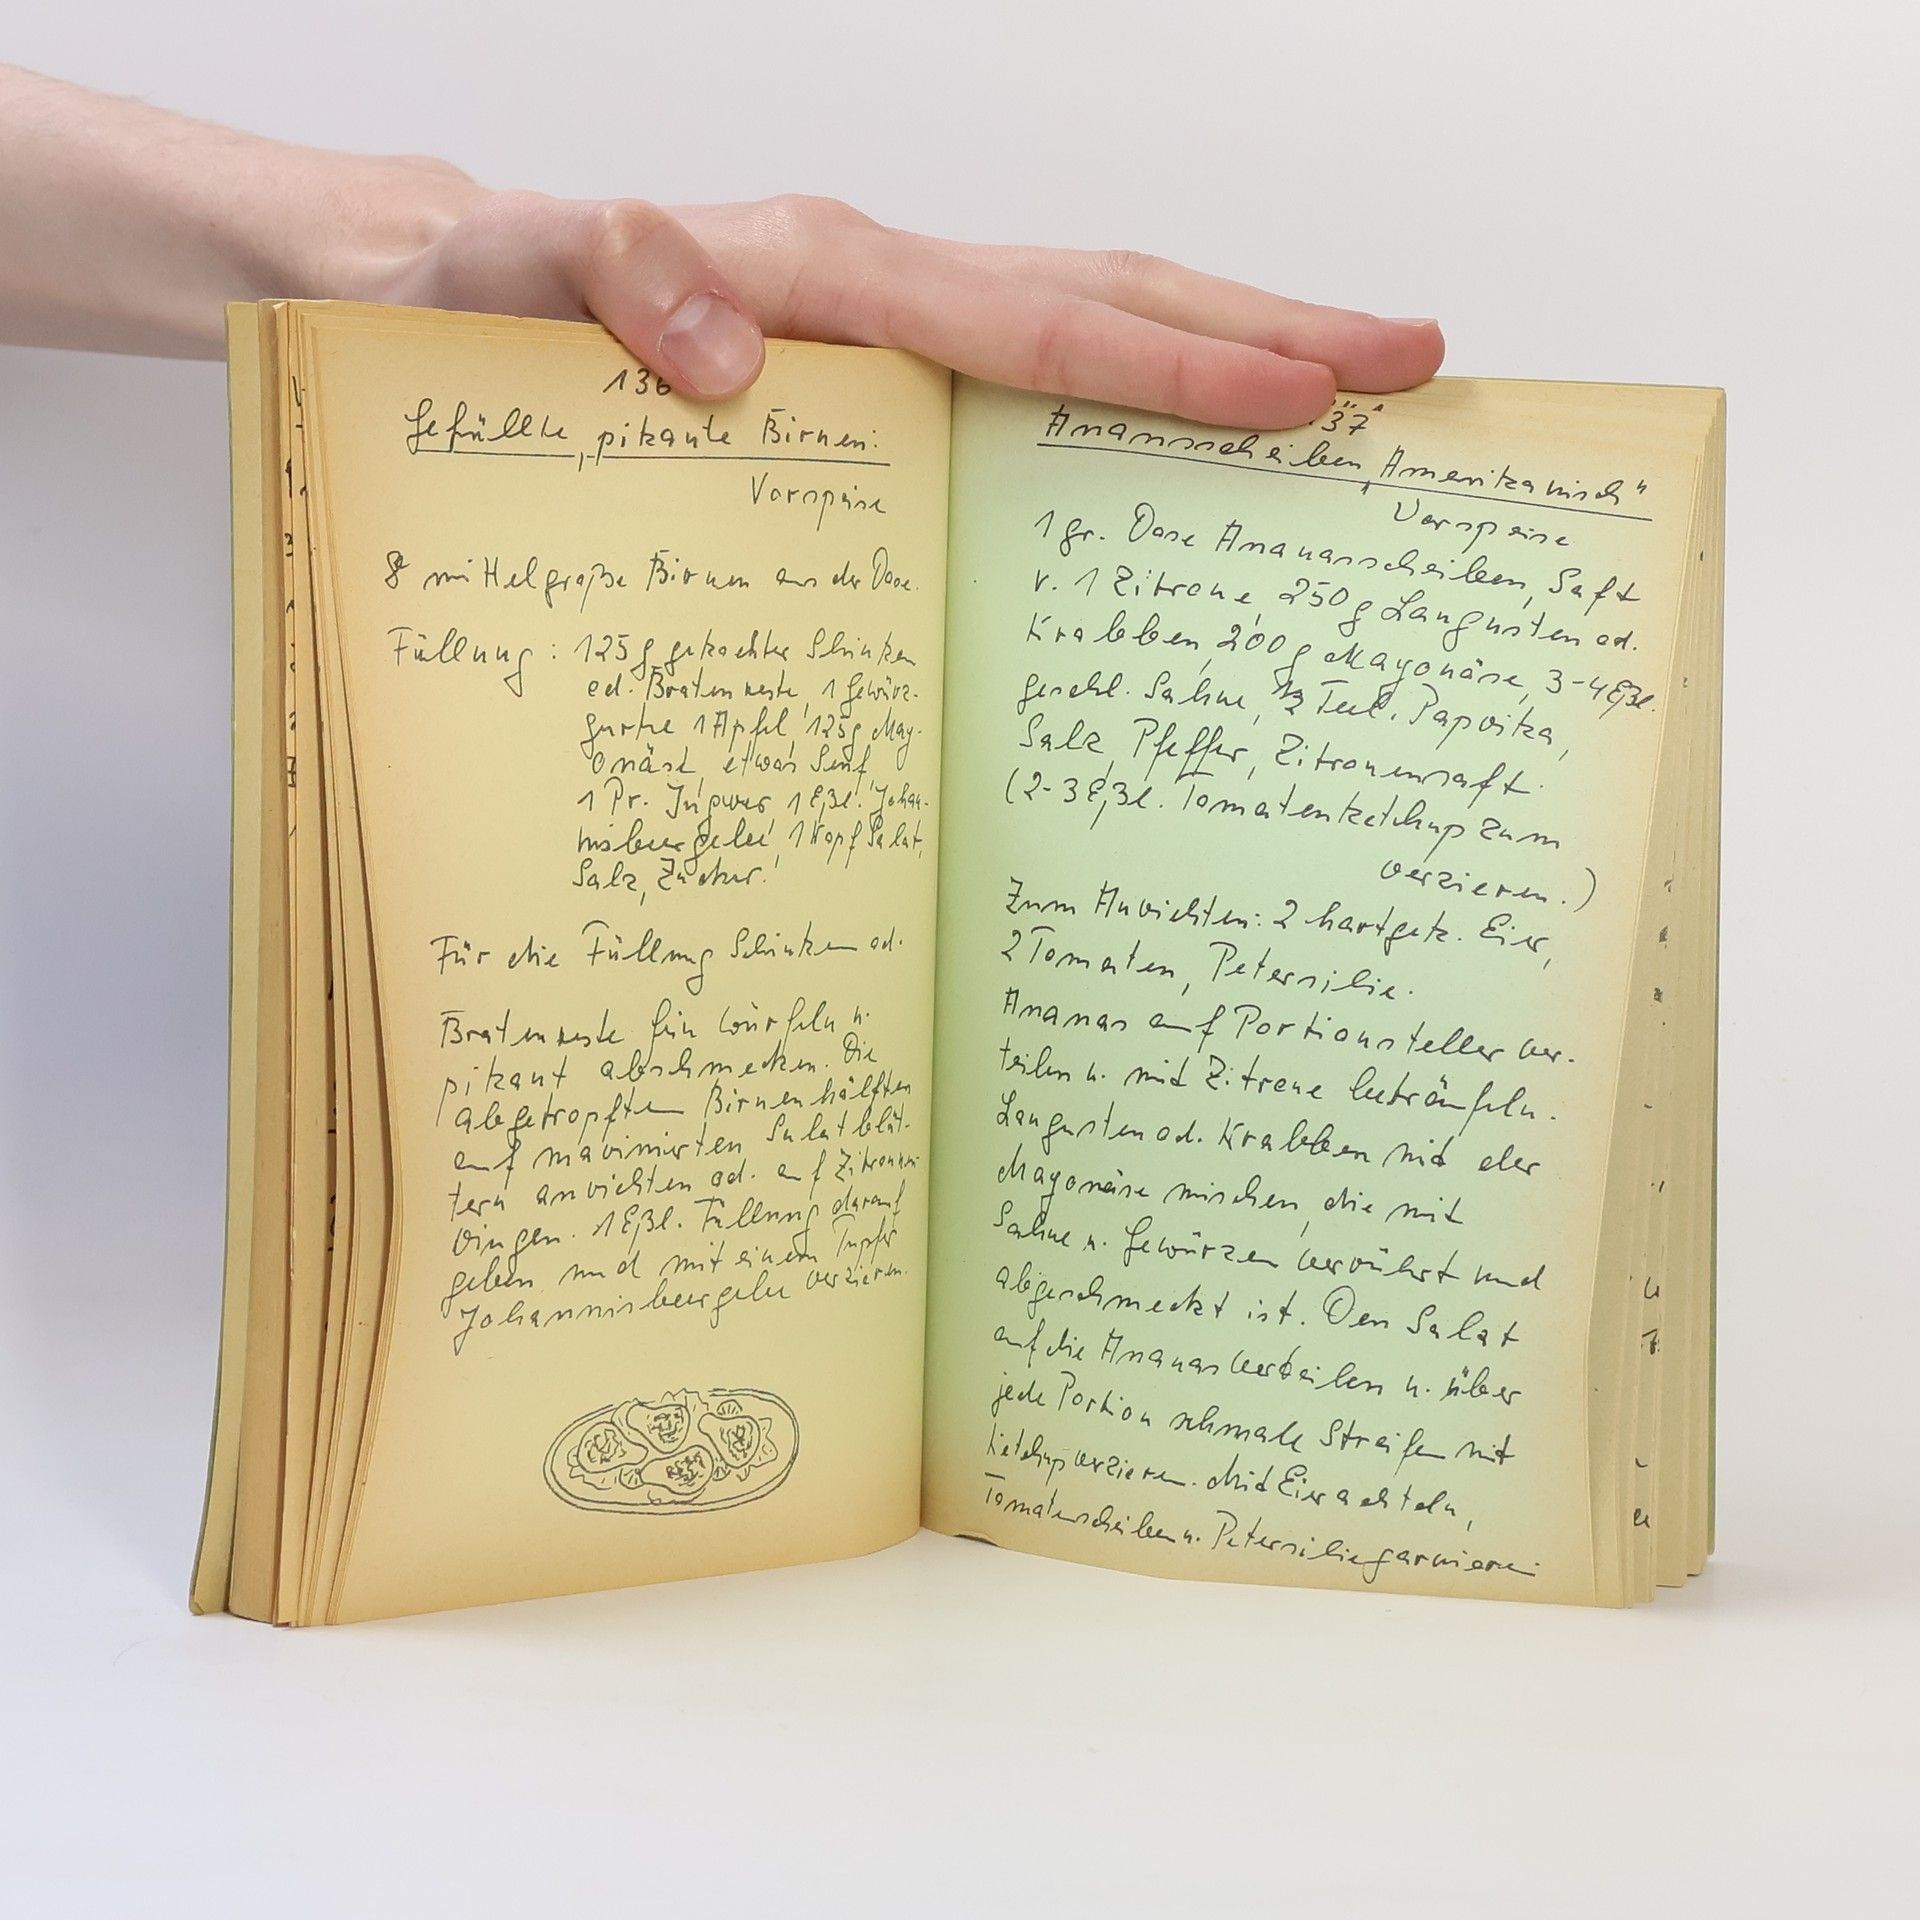 136
Gefüllte, pikante Birnen:
Vorspeise
8 mittelgroße Birnen aus der Dose.
Füllung: 125 g gekochter Schinken
od. Bratenreste, 1 Gewürz-
gurke, 1 Apfel, 125 g May-
onäse, etwas Senf,
1 Pr. Ingwer, 1 Eßl. Johan-
nisbeergelee, 1 Kopf Salat,
Salz, Zucker.
Für die Füllung Schinken od.
Bratenreste fein würfeln u.
pikant abschmecken. Die
abgetropften Birnenhälften
auf marinierten Salatblät-
tern anrichten od. auf Zitronen-
ringen. 1 Eßl. Füllung darauf
geben und mit einem Tupfer
Johannisbeergelee verzieren.
37
Ananasscheiben „Amerikanisch"
Vorspeise
1 gr. Dose Ananasscheiben, Saft
v. 1 Zitrone, 250 g Langusten od.
Krabben, 200 g Mayonäse, 3-4 Eßl.
geschl. Sahne, Teel. Paprika,
Salz, Pfeffer, Zitronensaft.
(2-3 Eßl. Tomatenketchup zum
verzieren.)
Zum Anrichten: 2 hartgek. Eier,
2 Tomaten, Petersilie.
Ananas auf Portionsteller ver-
teilen u. mit Zitrone beträufeln.
Langusten od. Krabben mit der
Mayonäse mischen, die mit
Sahne u. Gewürzen verrührt und
abgeschmeckt ist. Den Salat
auf die Ananas verteilen u. über
jede Portion schmale Streifen mit
Ketchup verzieren. Mit Eierachteln,
Tomatenscheiben u. Petersilie garnieren